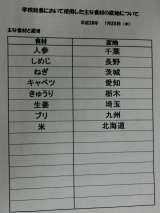 学校給食において使用した主な食材の産地について
平成28年 1月20日(水)
主な食材と産地
食材 産地
人参 千葉
しめじ 長野
ねぎ 茨城
キャベツ 愛知
きゅうり 栃木
生姜 埼玉
ブリ 九州
米 北海道